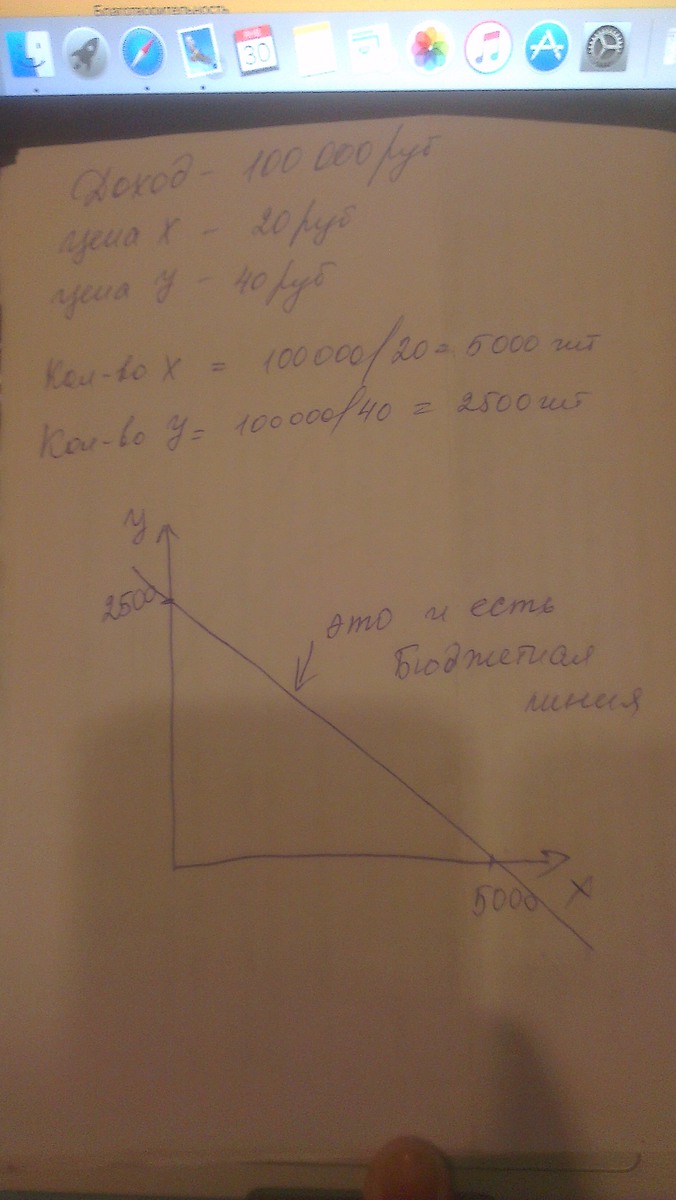 Благотворительность
ЯНВ.
30
Доход - 100 000 руб
цена x - 20 руб
цена y - 40 руб
Кол-во x = 100000/20 = 5000 шт
Кол-во y = 100000/40 = 2500 шт
y
2500
это и есть
Бюджетная
линия
5000
x